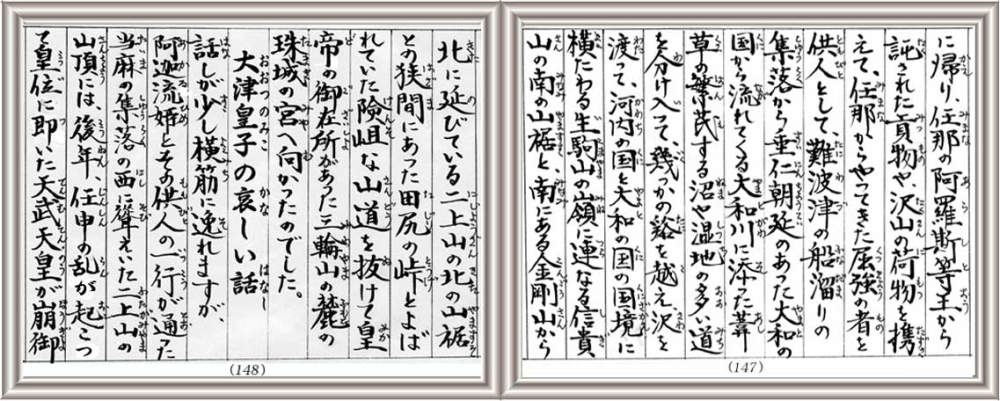 に帰り、任那の阿羅斯等王から
託された貢物や、沢山の荷物を携
えて、任那からやってきた屈強の者を
供人として、難波津の船溜りの
集落から垂仁朝廷のあった大和の
国から流れてくる大和川に添た葦
草の繁茂する沼や湿地の多い道
を分け入って、幾つかの谿を越え沢を
渡って、河内の国と大和の国の国境に
横たわる生駒山の嶺に連なる信貴
山の南の山裾と、南にある金剛山から
(147)
北に延びている二上山の北の山裾
との狭間にあった田尻の峠とよば
れていた険岨な山道を抜けて皇
帝の御在所があった三輪山の麓の
珠城の宮へ向かったのでした。
大津皇子の哀しい話
話しが少し横筋に逸れますが、
阿迦流姫とその供人の一行が通った
当麻の集落の西に聳えいた二上山の
山頂には、後年、任申の乱が起こっ
て皇位に即いた天武天皇が崩御
(148)